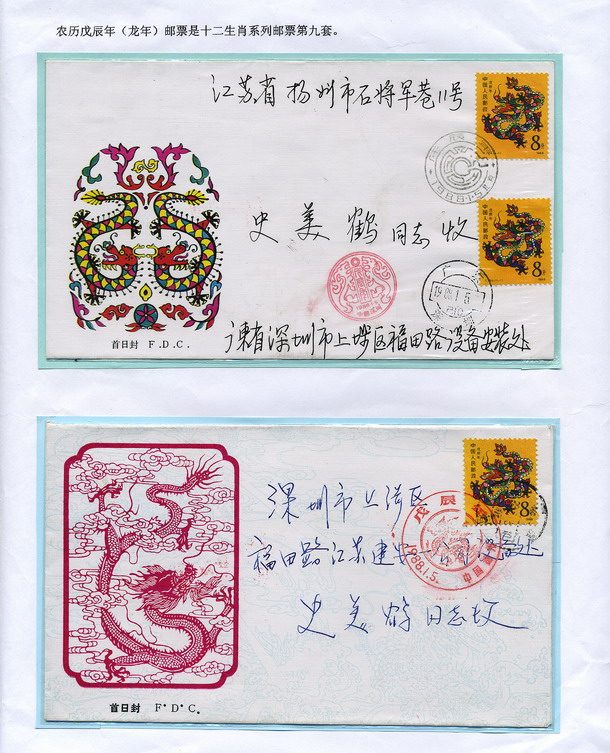 农历戊辰年（龙年）邮票是十二生肖系列邮票第九套。
江苏省扬州市石将军巷11号
8分
中国人民邮政
史美鹤同志收
8分
中国人民邮政
1988.1.5
广东省深圳市上埗区福田路设备安装处
首日封 F.D.C.
8分
中国人民邮政
戊辰
深圳市上
1988.1.5.
福田路江苏建安一公司设备处
史美鹤同志收
首日封 F·D·C.